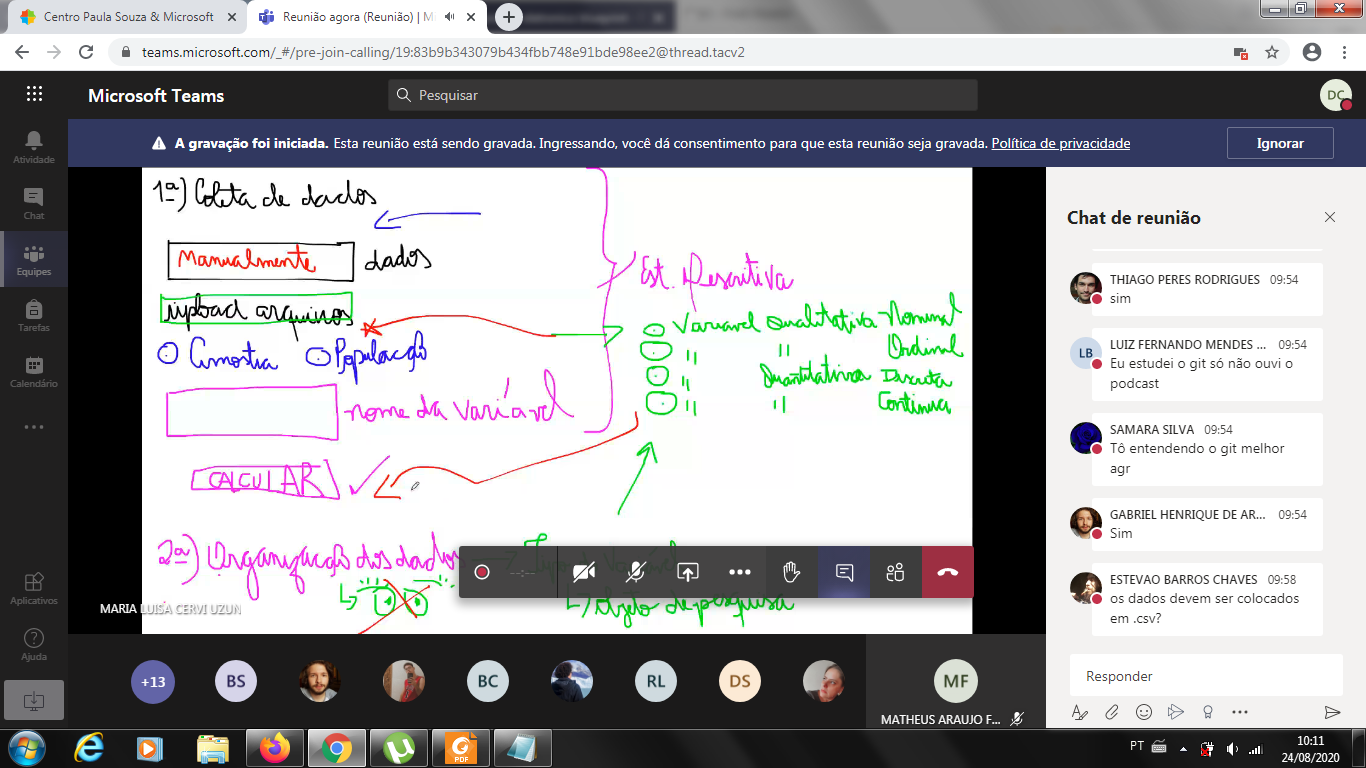 Centro Paula Souza & Microsoft
Reunião agora (Reunião) | Mi
teams.microsoft.com/_#/pre-join-calling/19:83b9b343079b434fbb748e91bde98ee2@thread.tacv2
Microsoft Teams
Pesquisar
DC
A gravação foi iniciada. Esta reunião está sendo gravada. Ingressando, você dá consentimento para que esta reunião seja gravada. Política de privacidade
Ignorar
Atividade
Chat
Equipes
Tarefas
Calendário
Aplicativos
Ajuda
1ª) Coleta de dados
Manualmente dados
upload arquivos
Amostra População
nome da variável
CALCULAR
Est. Descritiva
Variável Qualitativa Nominal
" " Ordinal
" Quantitativa Discreta
" " Continua
2ª) Organização dos dados
Objeto de pesquisa
MARIA LUISA CERVI UZUN
Chat de reunião
THIAGO PERES RODRIGUES 09:54
sim
LB
LUIZ FERNANDO MENDES ... 09:54
Eu estudei o git só não ouvi o
podcast
SAMARA SILVA 09:54
Tô entendendo o git melhor
agr
GABRIEL HENRIQUE DE AR... 09:54
Sim
ESTEVAO BARROS CHAVES 09:58
os dados devem ser colocados
em .csv?
Responder
+13
BS
BC
RL
DS
MF
MATHEUS ARAUJO F...
PDF
PT
10:11
24/08/2020